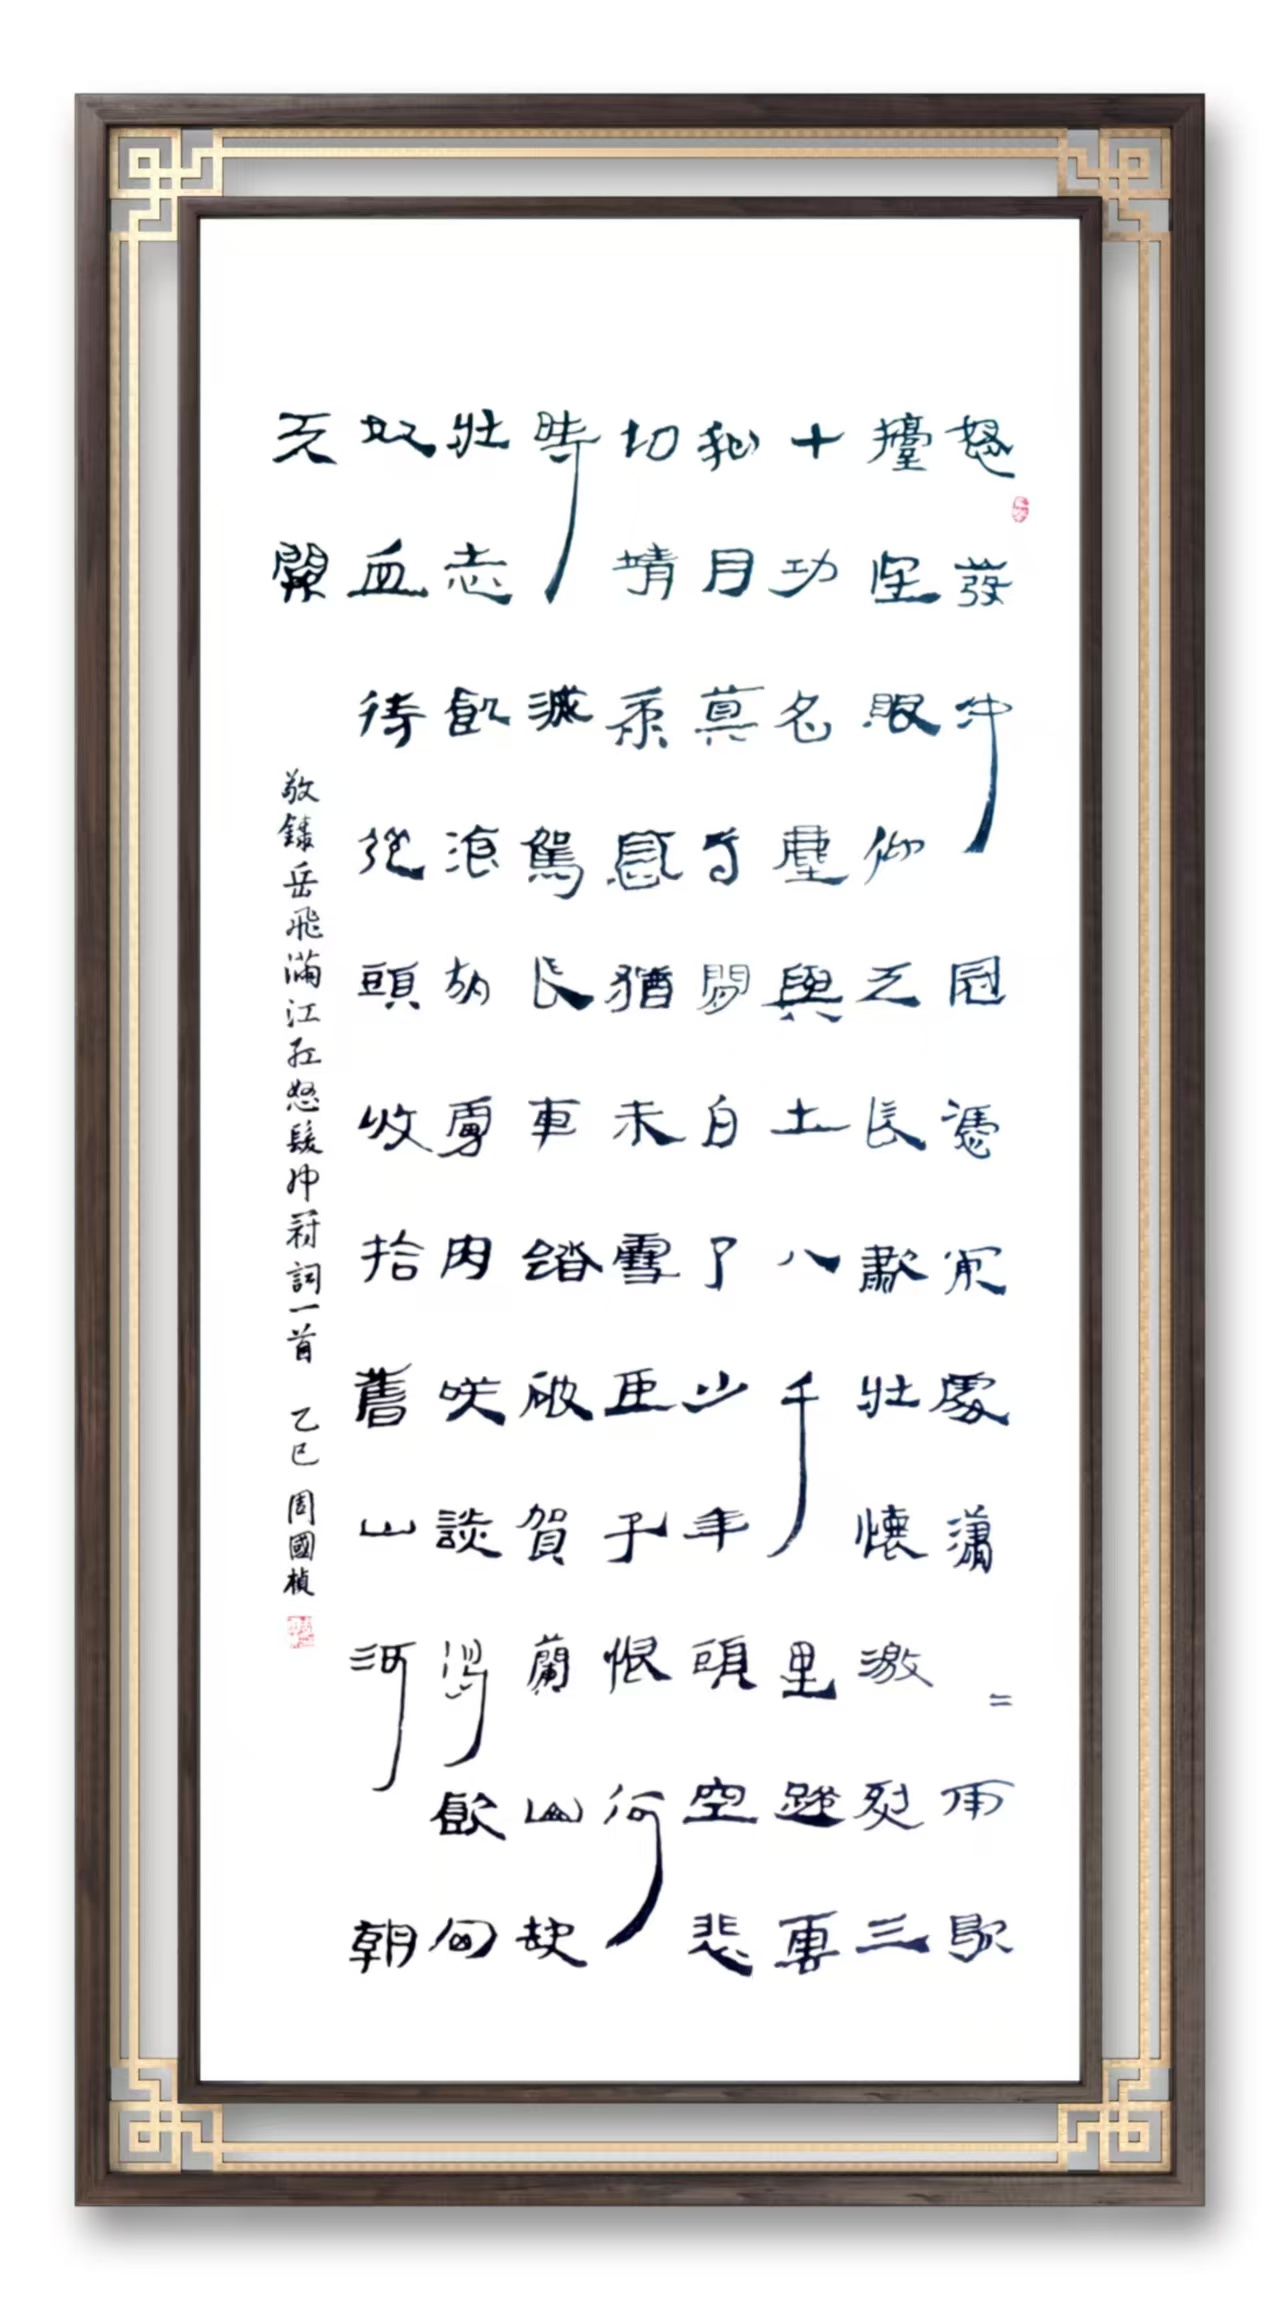 怒發沖冠憑闌處瀟=雨歇
擡望眼仰天長歗壯懷激烈三
十功名塵與土八千里路雲
和月莫等閒白了少年頭空悲
切靖康恥猶未雪臣子恨何
時滅駕長車踏破賀蘭山缺
壯志飢湌胡虜肉咲談渴飲匈
奴血待從頭收拾舊山河朝
天闕
敬錄岳飛滿江紅怒髮沖冠詞一首 乙巳 周國楨